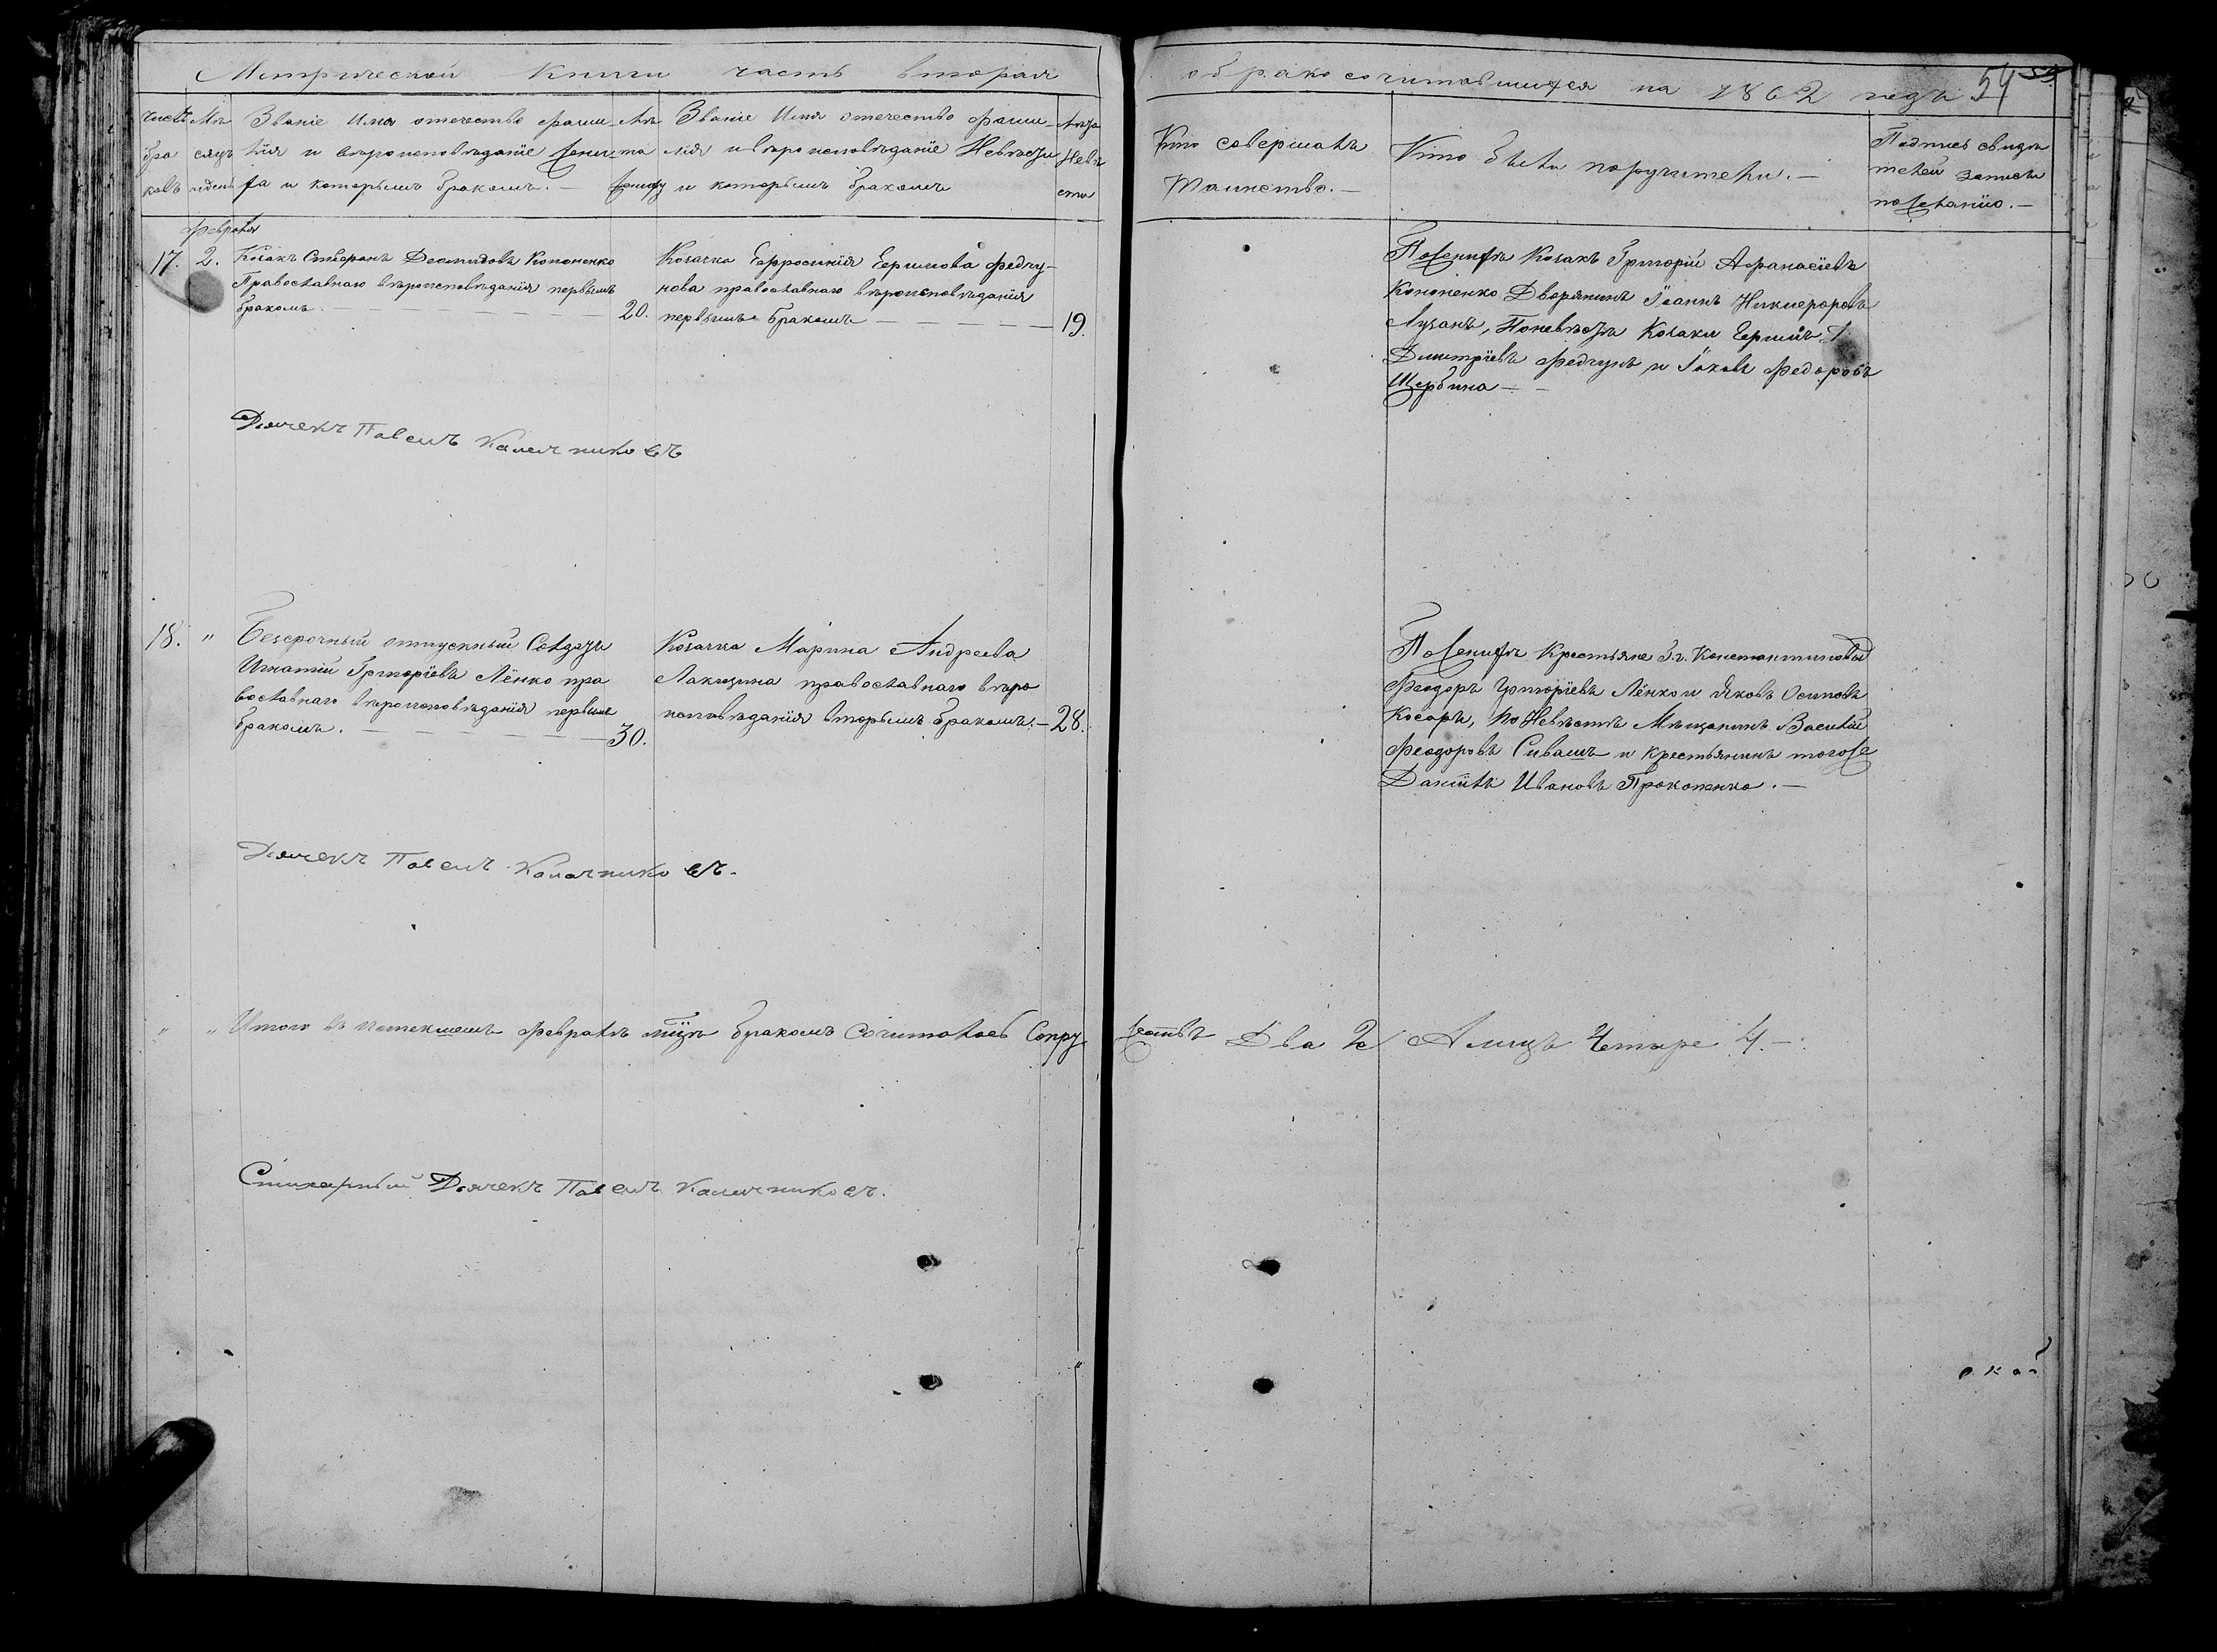 Метрической Книги часть вторая
о бракосочитавшихся на 1862 годъ 54
Число бра ковъ
Мѣ сяцъ иденъ
Званіе Имя отечество фами-
лія и вѣроисповѣданіе Жени-
ха и которымъ бракомъ. —
Лѣ та Жениху
Званіе Имя отечество фами-
лія ивѣроисповѣданіе Невѣсты
и которымъ бракомъ
Лѣта Невѣ сты
Кто совершалъ
Таинство. —
Кто были поручители. —
Подпись свидѣ
телей записи
пожеланію. —
Февраля
17. 2. Козакъ Стефанъ Деомидовъ Кононенко
Православнаго вѣроисповѣданія первымъ
бракомъ. — 20.
Козачка Евфросинія Ермилова Федчу-
нова православнаго вѣроисповѣданія
первымъ бракомъ — 19.
Пожениху Козакъ Григорій Афанасіевъ
Кононенко Дворянинъ Іоаннъ Никифоровъ
Лузанъ, Поневѣстѣ Козаки Ермилъ
Димитріевъ Федчунъ и Іаковъ Федоровъ
Щербина —
Дьячекъ Павелъ Калачниковъ
18. " Безсрочный отпускный Солдатъ
Игнатій Григоріевъ Лёнко пра
вославнаго вѣроисповѣданія первымъ
бракомъ. — 30.
Козачка Марина Андреева
православнаго вѣро
исповѣданія вторымъ бракомъ. — 28.
Пожениху Крестьяне Г. г. Константиновы
Феодоръ Григоріевъ Лёнко и Яковъ Осиповъ
Косаръ, по Невѣстѣ Мѣщанинъ Василій
Феодоровъ Сивашъ и крестьянинъ тогоже
Даніилъ Ивановъ Прокопенко. —
Дьячекъ Павелъ Калачниковъ.
" " Итого въ истекшемъ Февралѣ мцѣ бракомъ Сочиталось Супру
жествъ Два 2 А лицъ Четыре 4. —
Стихарный Дьячекъ Павелъ Калачниковъ.